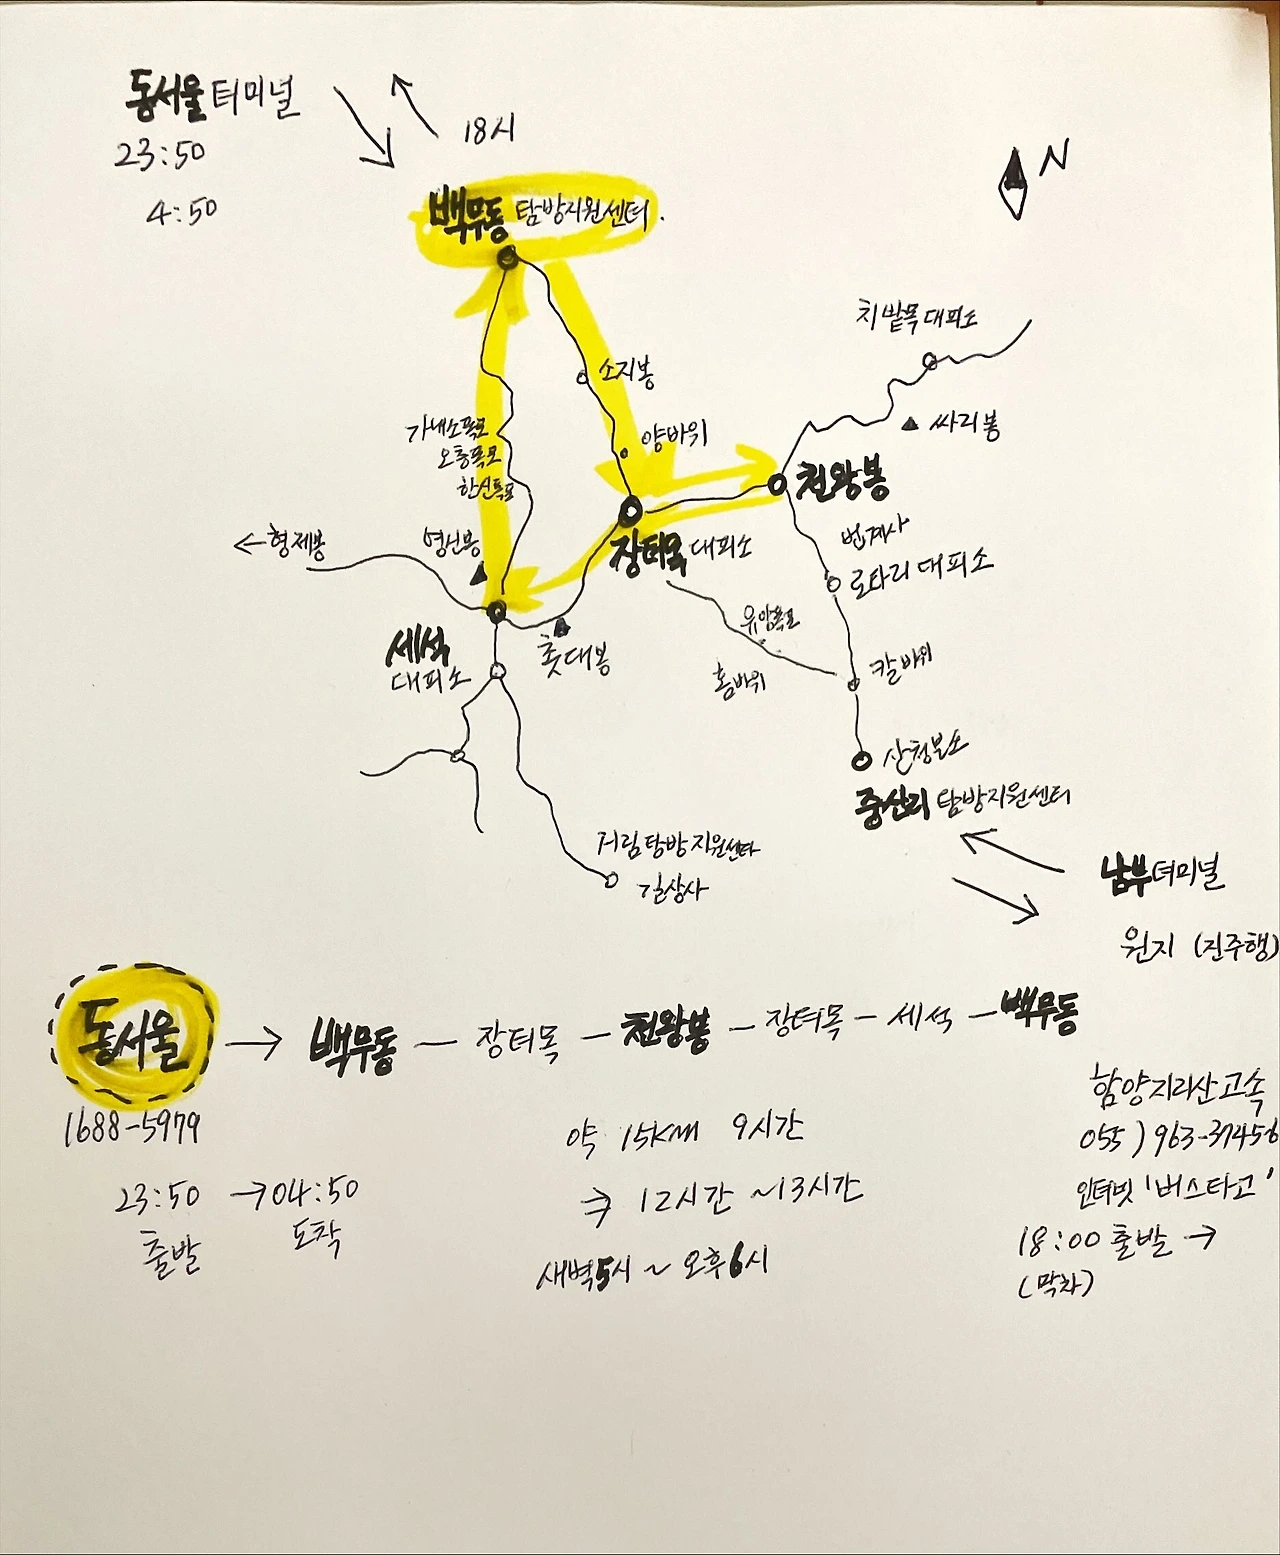 동서울터미널
23:50
4:50
18시
N
백무동 탐방지원센터.
치밭목대피소
소지봉
써리봉
가내소폭포
오층폭포
한신폭포
양바위
천왕봉
←형제봉
영신봉
장터목 대피소
법계사
로타리대피소
세석
대피소
촛대봉
유암폭포
홈바위
칼바위
산청분소
중산리 탐방지원센터
거림탐방지원센타
길상사
남부터미널
원지 (진주행)
동서울 → 백무동 - 장터목 - 천왕봉 - 장터목 - 세석 - 백무동
1688-5979
23:50 → 04:50
출발 도착
약 15km 9시간
⇒ 12시간 ~13시간
새벽5시 ~ 오후6시
함양지리산고속
055) 963-3745~6
인터넷 '버스타고'
18:00 출발 →
(막차)